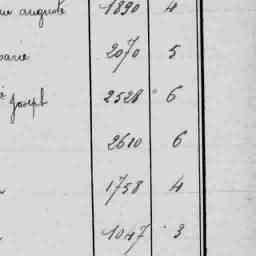 auguste 1890 4
2070 5
Joseph 2528 6
2610 6
1758 4
1047 3